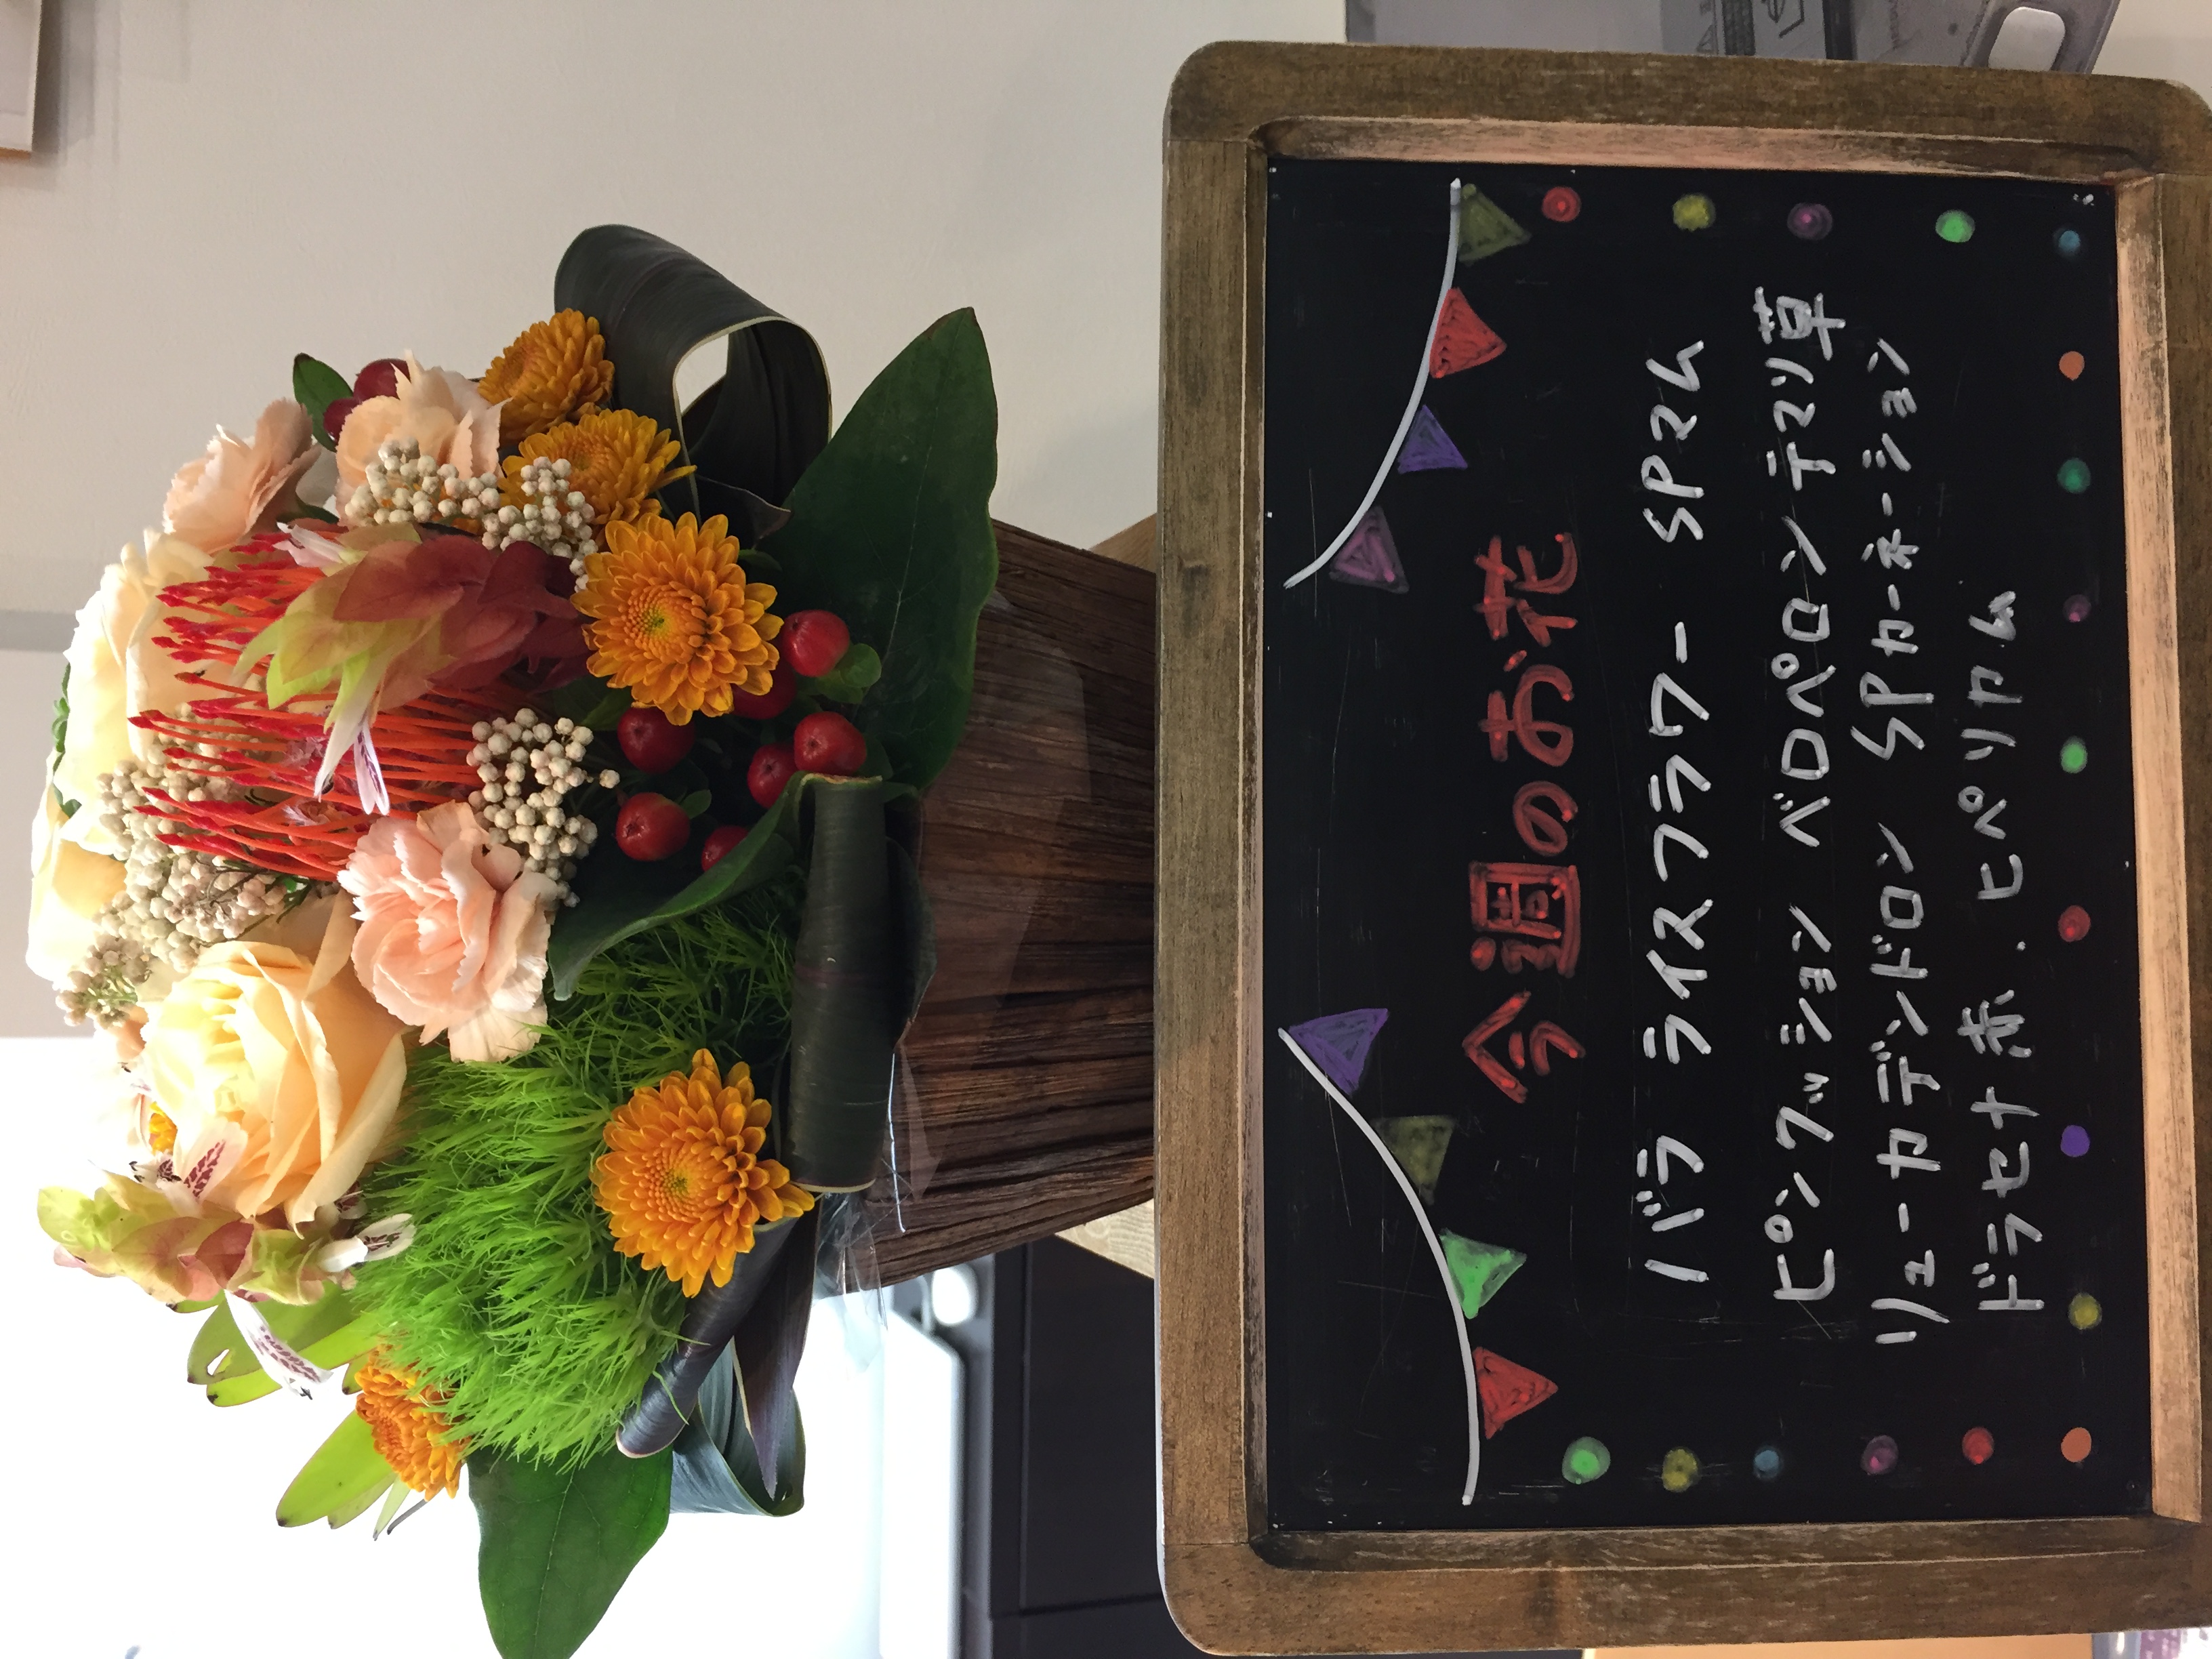 今週のお花
バラ ライスフラワー SPマム
ピンクッション ベロペロン テマリ草
リューカデンドロン SPカーネーション
ドラセナ 赤.ヒペリカム